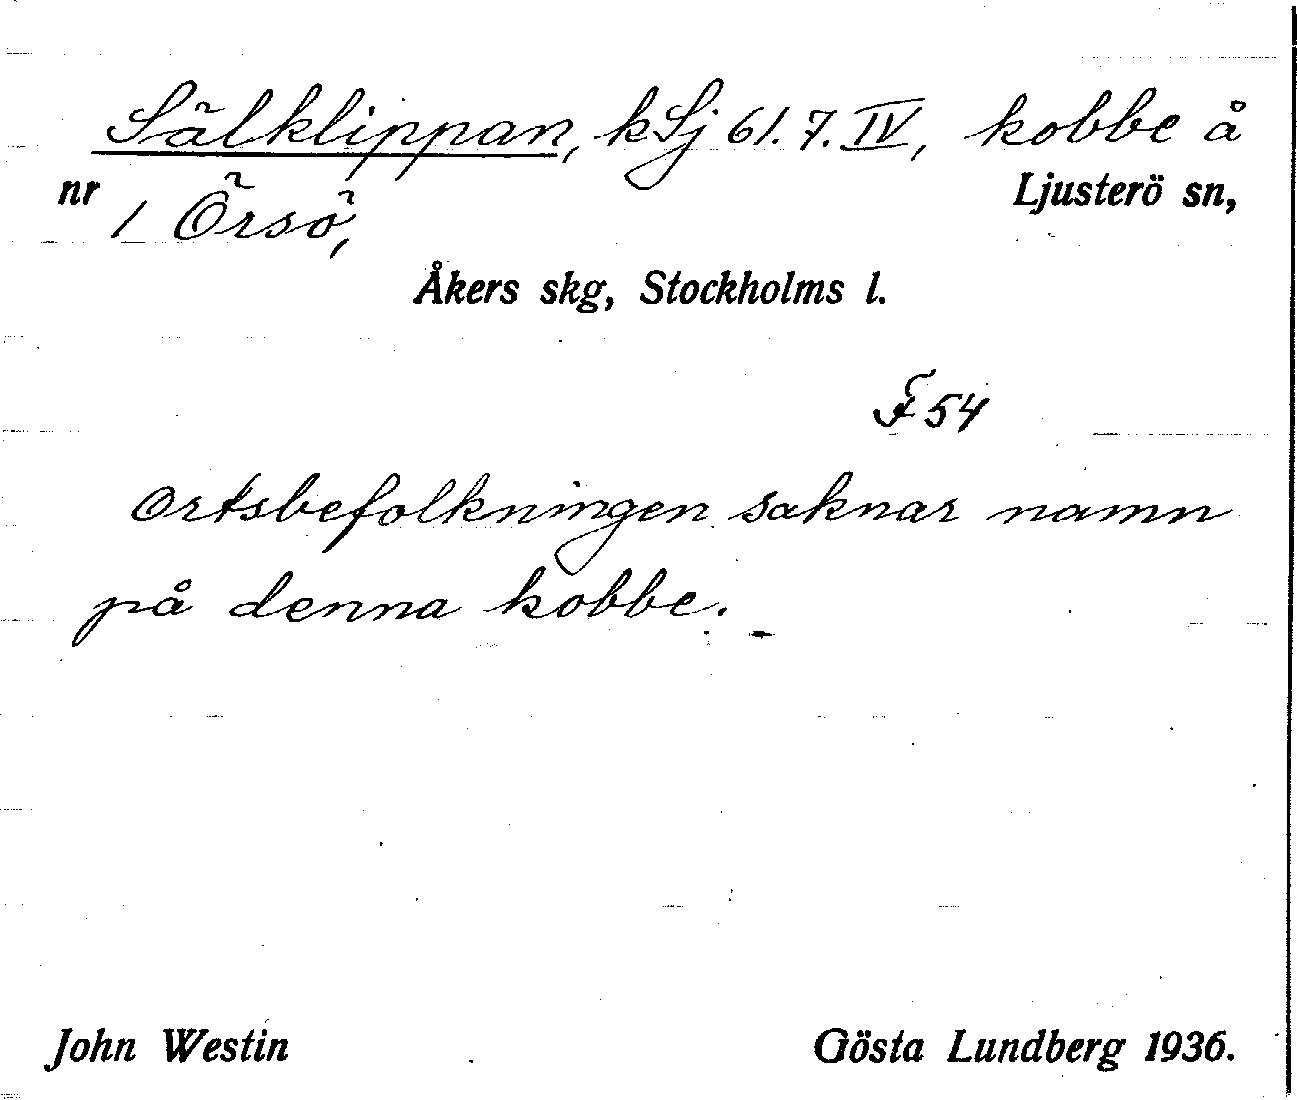 Sälklippan, kSj 61. 7. IV, kobbe å
nr 1 Örsö, Ljusterö sn,
Åkers skg, Stockholms l.
F 54
Ortsbefolkningen saknar namn
på denna kobbe.
John Westin Gösta Lundberg 1936.